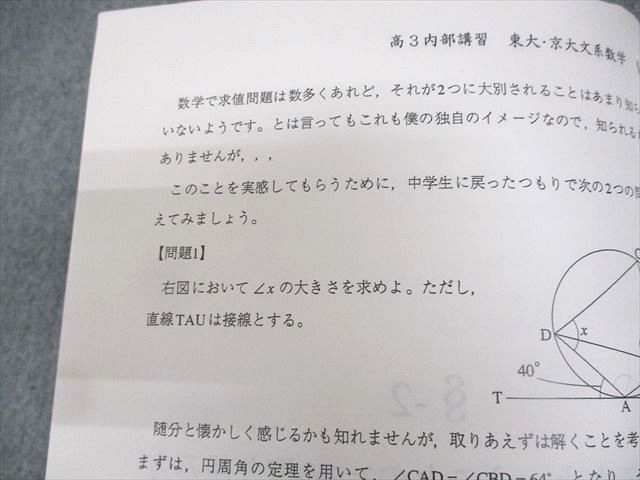 高3内部講習 東大・京大文系数学
数学で求値問題は数多くあれど，それが2つに大別されることはあまり知ら
いないようです。とは言ってもこれも僕の独自のイメージなので，知られる
ありませんが，，，
このことを実感してもらうために，中学生に戻ったつもりで次の2つの
えてみましょう。
【問題1】
右図において∠xの大きさを求めよ。ただし，
直線TAUは接線とする。
D
x
40°
T
A
§-2
随分と懐かしく感じるかも知れませんが，取りあえずは解くことを考
まずは，円周角の定理を用いて，∠CAD=∠CBD=64° となり，